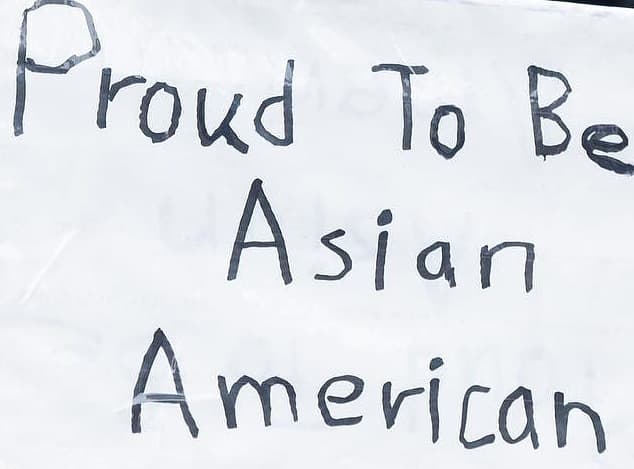 Proud To Be
Asian
American